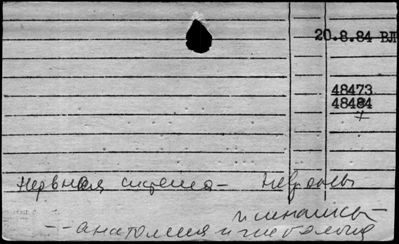 20.8.84 ВЛ
48473
48484
Нервная система — Нейроны
и синапсы —
— анатомия и гистология